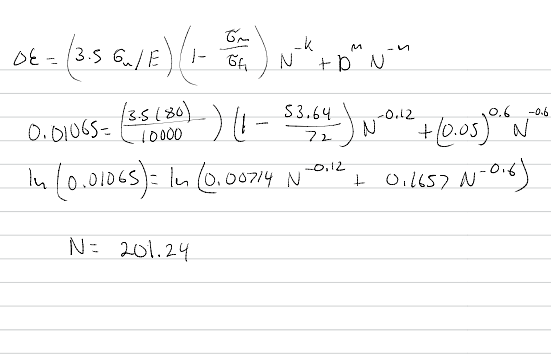 Δε = (3.5 σu/E) (1 - σm/σf) N^-k + D^m N^-n
0.01065 = (3.5(80)/10000) (1 - 53.64/72) N^-0.12 + (0.05)^0.6 N^-0.6
ln (0.01065) = ln (0.00714 N^-0.12 + 0.1657 N^-0.6)
N = 201.24